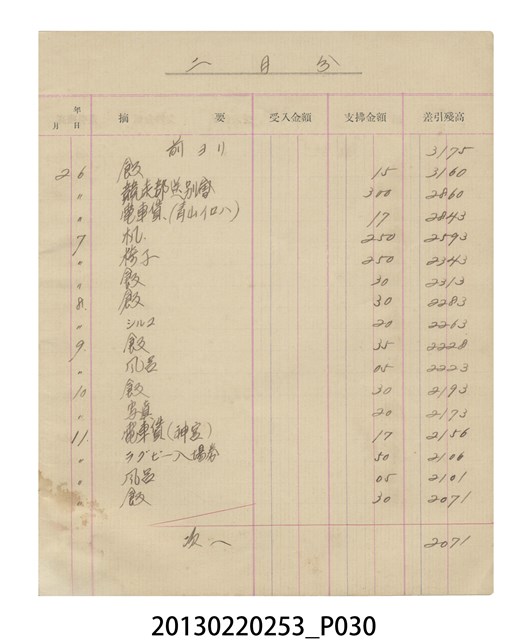 二月分
年
月 日 摘要 受入金額 支拂金額 差引残高
前ヨリ 3175
2 6 飯 15 3160
〃 競走部送別會 300 2860
〃 電車賃(青山イロハ) 17 2843
7 机 250 2593
〃 椅子 250 2343
〃 飯 30 2313
8. 飯 30 2283
〃 シルコ 20 2263
9. 飯 35 2228
〃 风呂 05 2223
10 飯 30 2193
〃 写真 20 2173
11. 電車賃(神宮) 17 2156
〃 ラグビー入場券 50 2106
〃 风呂 05 2101
〃 飯 30 2071
次へ 2071
20130220253_P030